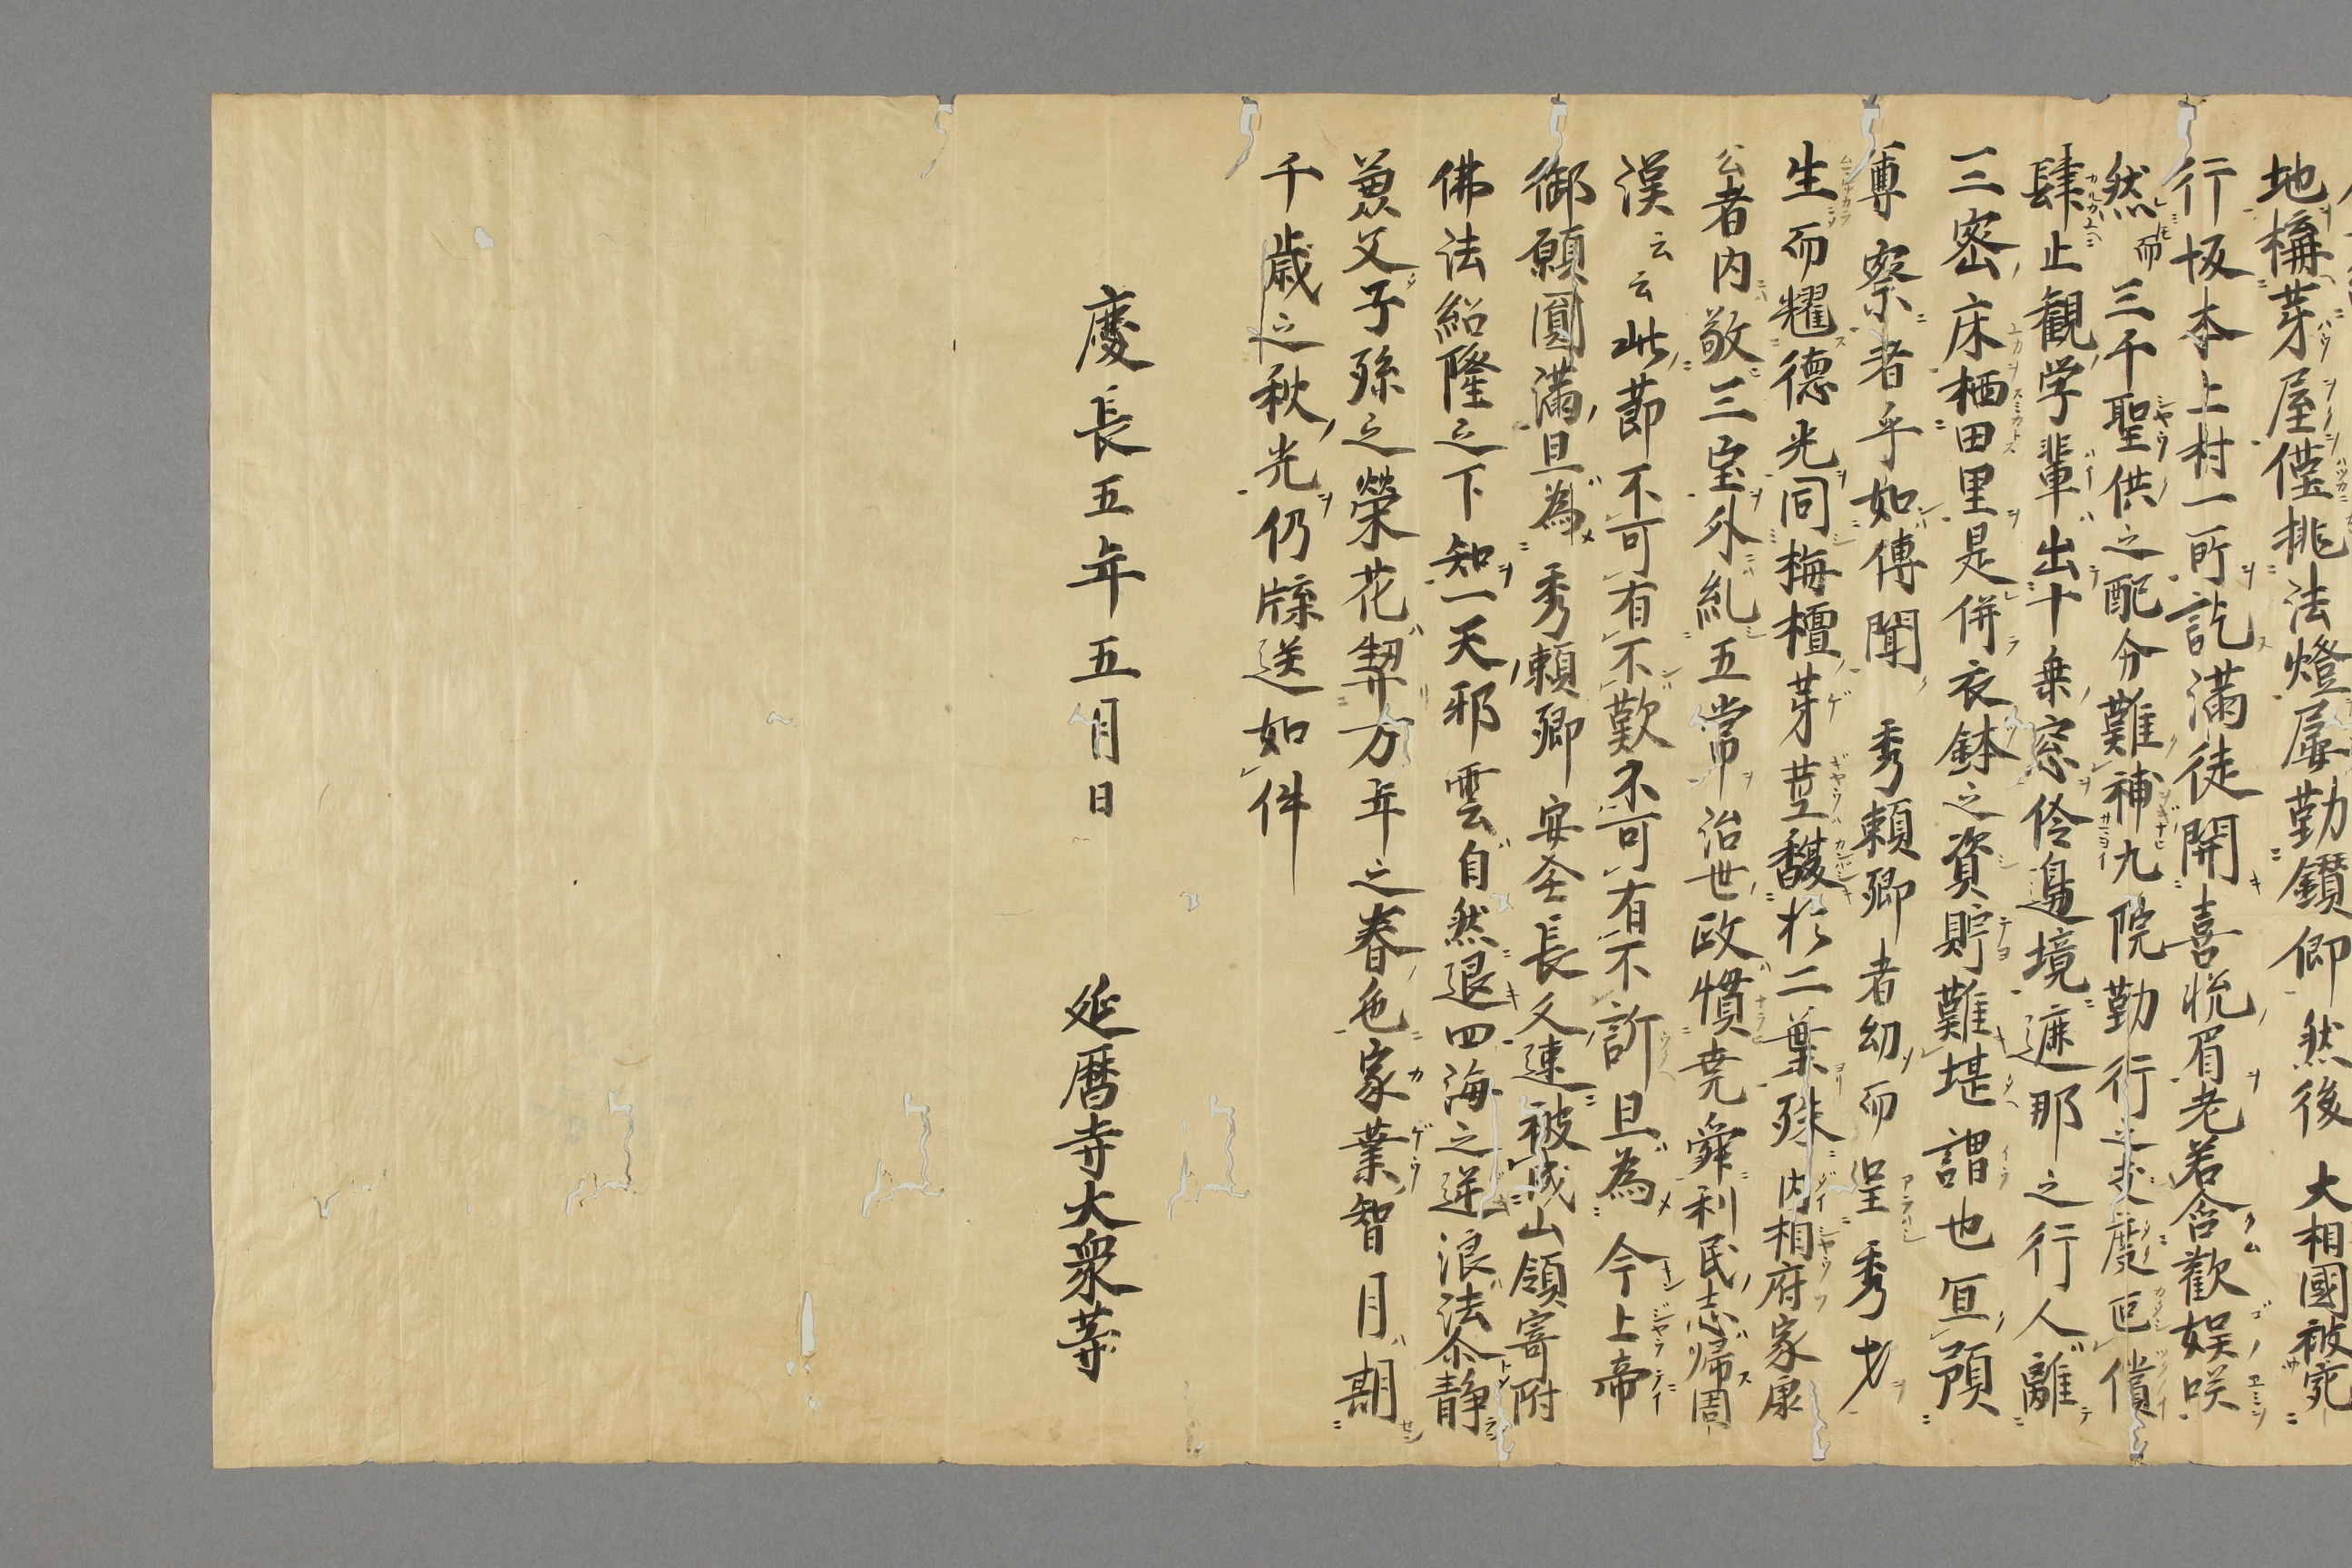 地構芽屋僅挑法燈屢勤鑽仰然後　大相國被宛
行坂本上村一所訖満徒開喜悦眉老若含歡娯咲
然而三千聖供之配分難補九院勤行之支度叵償
肆止観学輩出十乗窓伶邉境遮那之行人離
三密床栖田里是併衣鉢之資貯難堪謂也亘預
專察者乎如傳聞　秀頼卿者幼而逞秀才
生而耀徳光同梅檀芽茎馥於二葉殊内相府家康
公者内敬三宝外糺五常治世政慣尭舜利民志帰周
漢云云此莭不可有不歎不可有不訴且為　今上帝
御願圓満且為　秀頼卿安全長久速被成山領寄附
佛法紹隆之下知一天邪雲自然退四海之逆浪法尒静
兼又子孫之榮花契万年之春色家業智月期
千歳之秋光仍牒送如件
慶長五年五月日　延暦寺大衆等